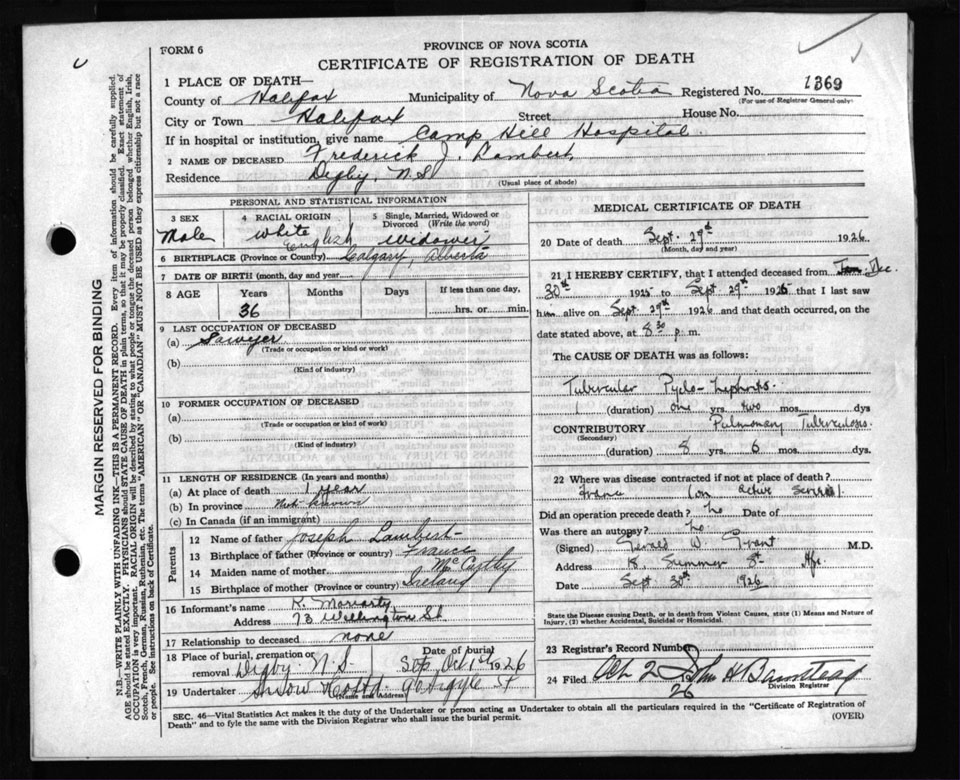 FORM 6
PROVINCE OF NOVA SCOTIA
CERTIFICATE OF REGISTRATION OF DEATH
1 PLACE OF DEATH—
County of Halifax Municipality of Nova Scotia Registered No. 1369
(For use of Registrar General only)
City or Town Halifax Street House No.
If in hospital or institution, give name Camp Hill Hospital.
2 NAME OF DECEASED Frederick J. Lambert
Residence Digby, N.S.
(Usual place of abode)
PERSONAL AND STATISTICAL INFORMATION
3 SEX 4 RACIAL ORIGIN 5 Single, Married, Widowed or Divorced (Write the word)
Male White English Widower
6 BIRTHPLACE (Province or Country) Calgary, Alberta
7 DATE OF BIRTH (month, day and year)
8 AGE Years Months Days If less than one day,
36 hrs. or min.
9 LAST OCCUPATION OF DECEASED
(a) Sawyer
(Trade or occupation or kind or work)
(b)
(Kind of industry)
10 FORMER OCCUPATION OF DECEASED
(a)
(Trade or occupation or kind of work)
(b)
(Kind of industry)
11 LENGTH OF RESIDENCE (In years and months)
(a) At place of death 1 year
(b) In province Not known
(c) In Canada (if an immigrant)
Parents
12 Name of father Joseph Lambert
13 Birthplace of father (Province or country) France
14 Maiden name of mother McCarthy
15 Birthplace of mother (Province or country) Ireland
16 Informant's name K. Moriarty
Address 73 Wellington St
17 Relationship to deceased none
18 Place of burial, cremation or removal Digby N.S. Date of burial Oct 1st 1926
19 Undertaker Snow & Co Ltd 90 Argyle St
(Name and Address)
MEDICAL CERTIFICATE OF DEATH
20 Date of death Sept. 29th 1926
(Month, day and year)
21 I HEREBY CERTIFY, that I attended deceased from Dec.
30th 1925 to Sept 29th 1926 that I last saw
him alive on Sept 29th 1926 and that death occurred, on the
date stated above, at 8:30 p. m.
The CAUSE OF DEATH was as follows:
Tubercular Pyelo-Nephritis.
(duration) one yrs. two mos. dys
CONTRIBUTORY Pulmonary Tuberculosis.
(Secondary)
(duration) 8 yrs. 6 mos. dys.
22 Where was disease contracted if not at place of death?
France (on Active Service).
Did an operation precede death? No Date of
Was there an autopsy? No
(Signed) Gerald W. Grant M.D.
Address 18 Summer St Hfx.
Date Sept 30th 1926
State the Disease causing Death, or in death from Violent Causes, state (1) Means and Nature of
Injury, (2) whether Accidental, Suicidal or Homicidal.
23 Registrar's Record Number
24 Filed Oct 2 26 John H Barnstead
Division Registrar
SEC. 46—Vital Statistics Act makes it the duty of the Undertaker or person acting as Undertaker to obtain all the particulars required in the "Certificate of Registration of
Death" and to fyle the same with the Division Registrar who shall issue the burial permit.
(OVER)
MARGIN RESERVED FOR BINDING
N.B.—WRITE PLAINLY WITH UNFADING INK—THIS IS A PERMANENT RECORD. Every item of information should be carefully supplied.
AGE should be stated EXACTLY. PHYSICIANS should STATE CAUSE OF DEATH in plain terms, so that it may be properly classified. Exact statement of
OCCUPATION is very important. RACIAL ORIGIN will be described by stating to what people or tongue the deceased person belonged whether English, Irish,
Scotch, French, German, Russian, Ruthenian, etc. The terms "AMERICAN" OR "CANADIAN" MUST NOT BE USED as they express citizenship but not a race
or people. See instructions on back of Certificate.